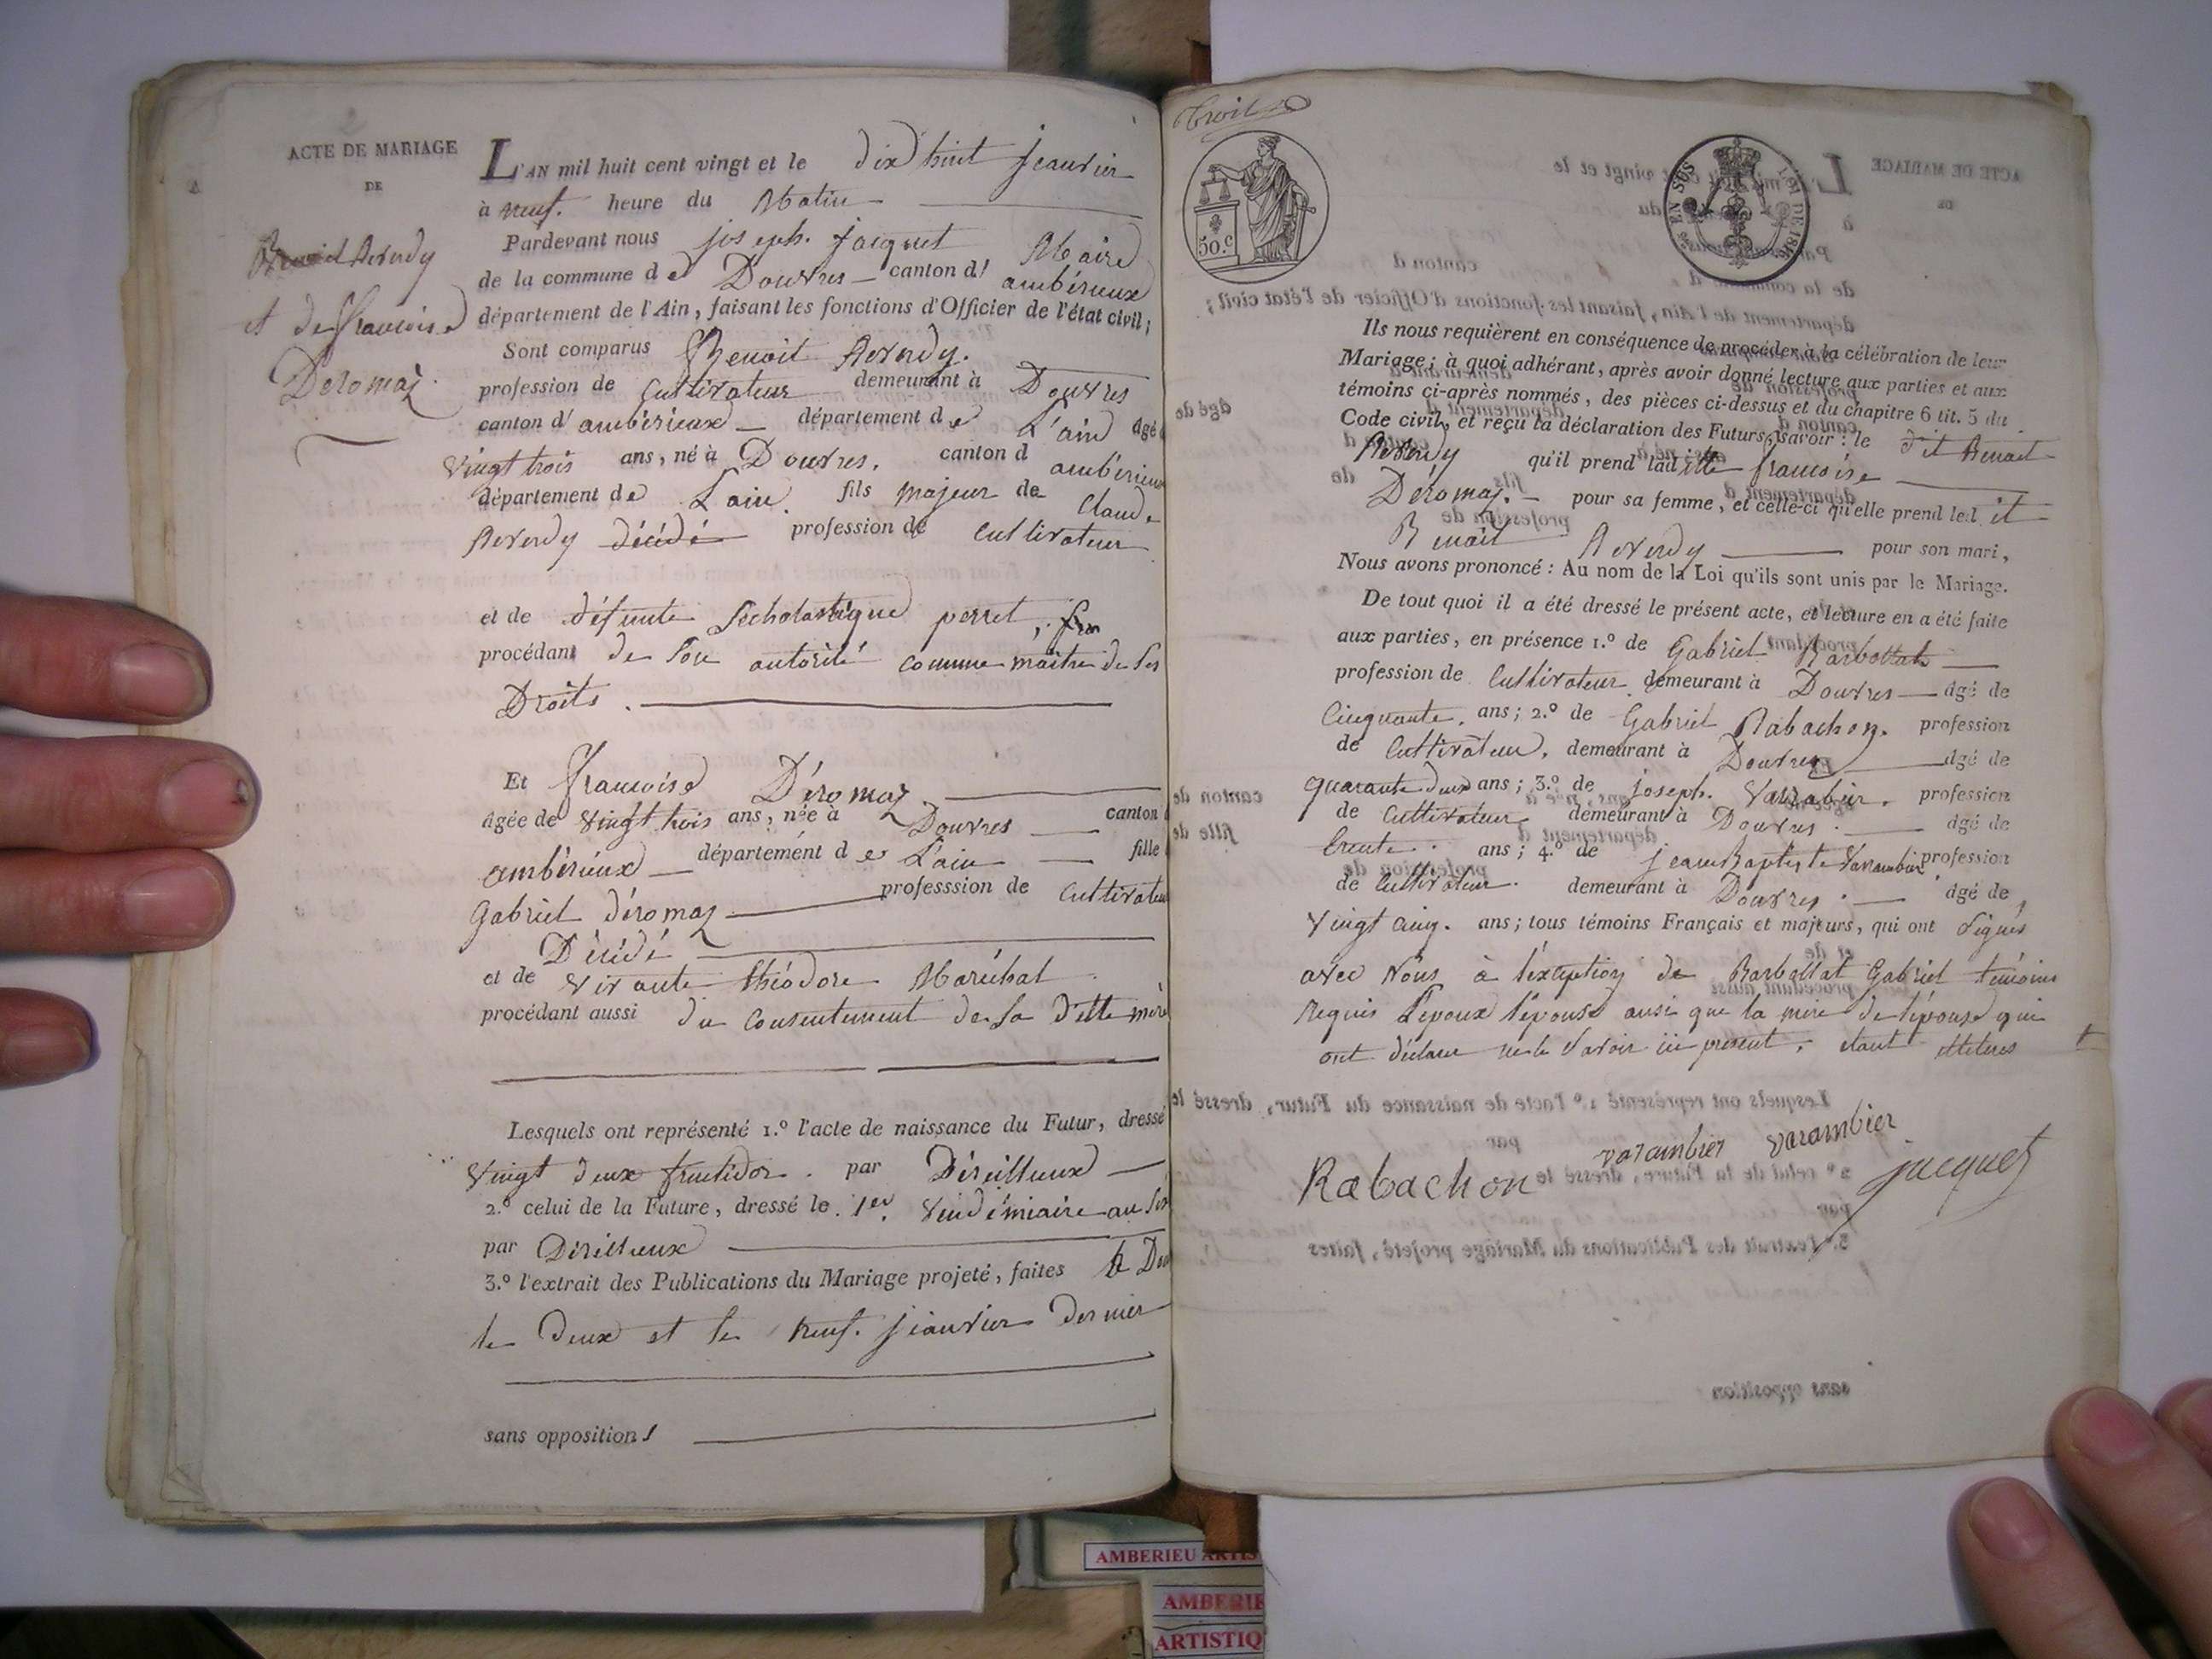 ACTE DE MARIAGE
DE
Benoit Reverdy
et de francoise
Deromaz
L'AN mil huit cent vingt et le dix huit jeanvier
à neuf. heure du Matin
Pardevant nous joseph. jacquet Maire
de la commune de Douvres canton d'ambérieux
département de l'Ain, faisant les fonctions d'Officier de l'état civil;
Sont comparus Benoit Reverdy.
profession de Cultivateur demeurant à Douvres
canton d'ambérieux département de L'ain âgé
vingt trois ans, né à Douvres. canton d ambérieux
département de L'ain. fils majeur de Claude
Reverdy décédé profession de Cultivateur
et de défunte Scholastique perret,
procédant de son autorité comme maître de ses
Droits.
Et francoise Déromaz
âgée de vingt trois ans, née à Douvres canton
ambérieux département de L'ain fille
Gabriel déromaz professsion de Cultivateur
Décédé
et de vivante théodore Maréchal
procédant aussi du consentement de sa ditte mère
Lesquels ont représenté 1.º l'acte de naissance du Futur, dressé
vingt deux fructidor. par Déreilleux
2.º celui de la Future, dressé le 1er. vendémiaire an six
par Déreilleux
3.º l'extrait des Publications du Mariage projeté, faites à Dou
le Deux et le neuf. jeanvier dernier
sans opposition
Troil
50.c
EN SUS
LOI DE 1816
Ils nous requièrent en conséquence de procéder à la célébration de leur
Mariage; à quoi adhérant, après avoir donné lecture aux parties et aux
témoins ci-après nommés, des pièces ci-dessus et du chapitre 6 tit. 5 du
Code civil, et reçu la déclaration des Futurs, savoir: le dit Benoit
Reverdy qu'il prend laditte francoise
Déromaz. pour sa femme, et celle-ci qu'elle prend ledit
Benoit Reverdy pour son mari,
Nous avons prononcé: Au nom de la Loi qu'ils sont unis par le Mariage.
De tout quoi il a été dressé le présent acte, et lecture en a été faite
aux parties, en présence 1.º de Gabriel Barbollat
profession de Cultivateur demeurant à Douvres âgé de
Cinquante. ans; 2.º de Gabriel Rabachon. profession
de Cultivateur. demeurant à Douvres âgé de
quarante deux ans; 3.º de joseph. Varrabier. profession
de Cultivateur demeurant à Douvres. âgé de
trente. ans; 4.º de jean Baptiste Varrambier profession
de Cultivateur. demeurant à Douvres. âgé de
vingt cinq. ans; tous témoins Français et majeurs, qui ont signés
avec nous à l'exception de Barbollat Gabriel témoins
requis L'époux l'épouse ausi que la mère de l'épouse qui
ont déclaré ne le savoir présent, étant illitérés
Rabachon varambier varambier
jacquet
AMBERIEU ARTIS
AMBERIE
ARTISTIQ